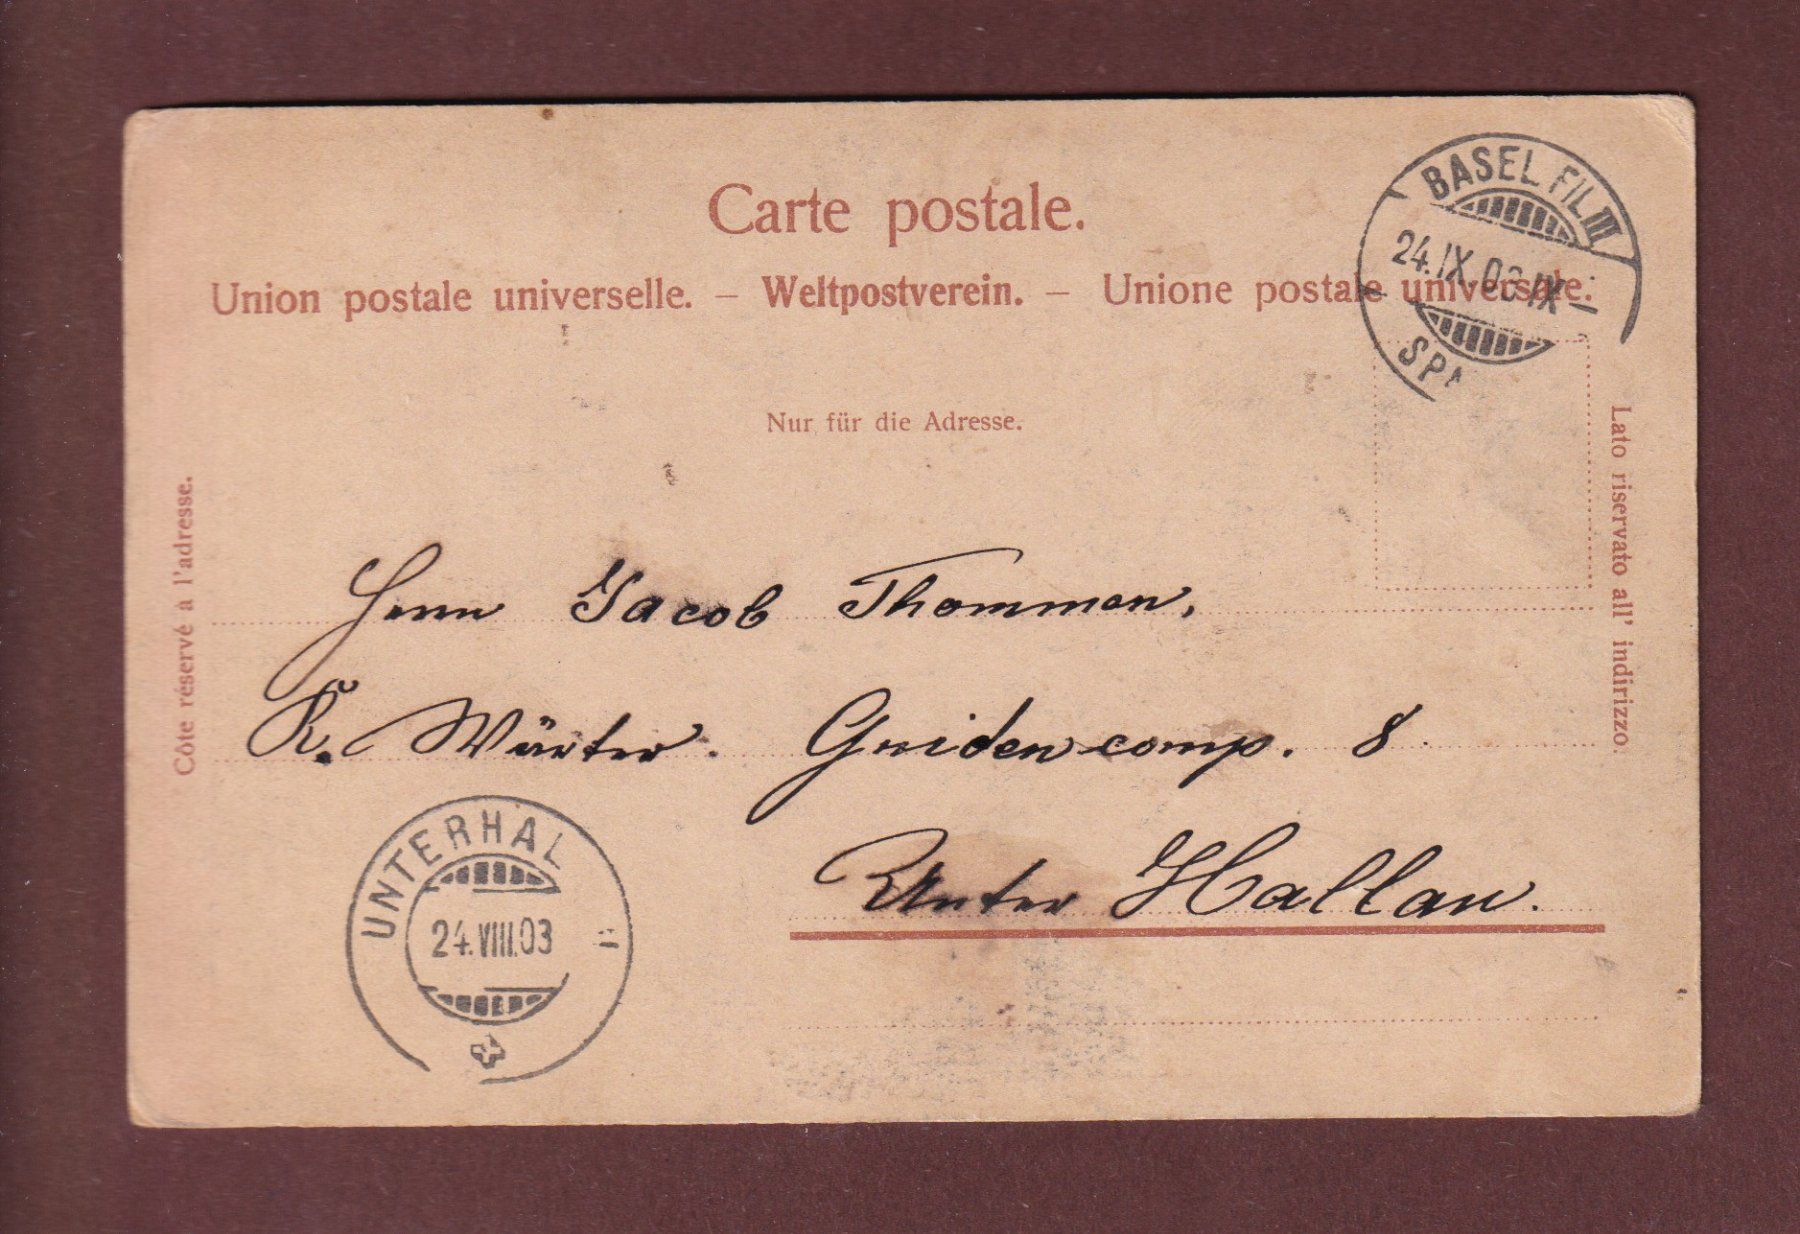 Carte postale.
BASEL FIL III
24.IX.03 IX –
SPA
Union postale universelle. – Weltpostverein. – Unione postale universale.
Nur für die Adresse.
Côte réservé à l'adresse.
Lato riservato all' indirizzo.
Herrn Jacob Thommen,
K. Wärter. Guidencomp. 8
Unter Hallau.
UNTERHAL
24.VIII.03